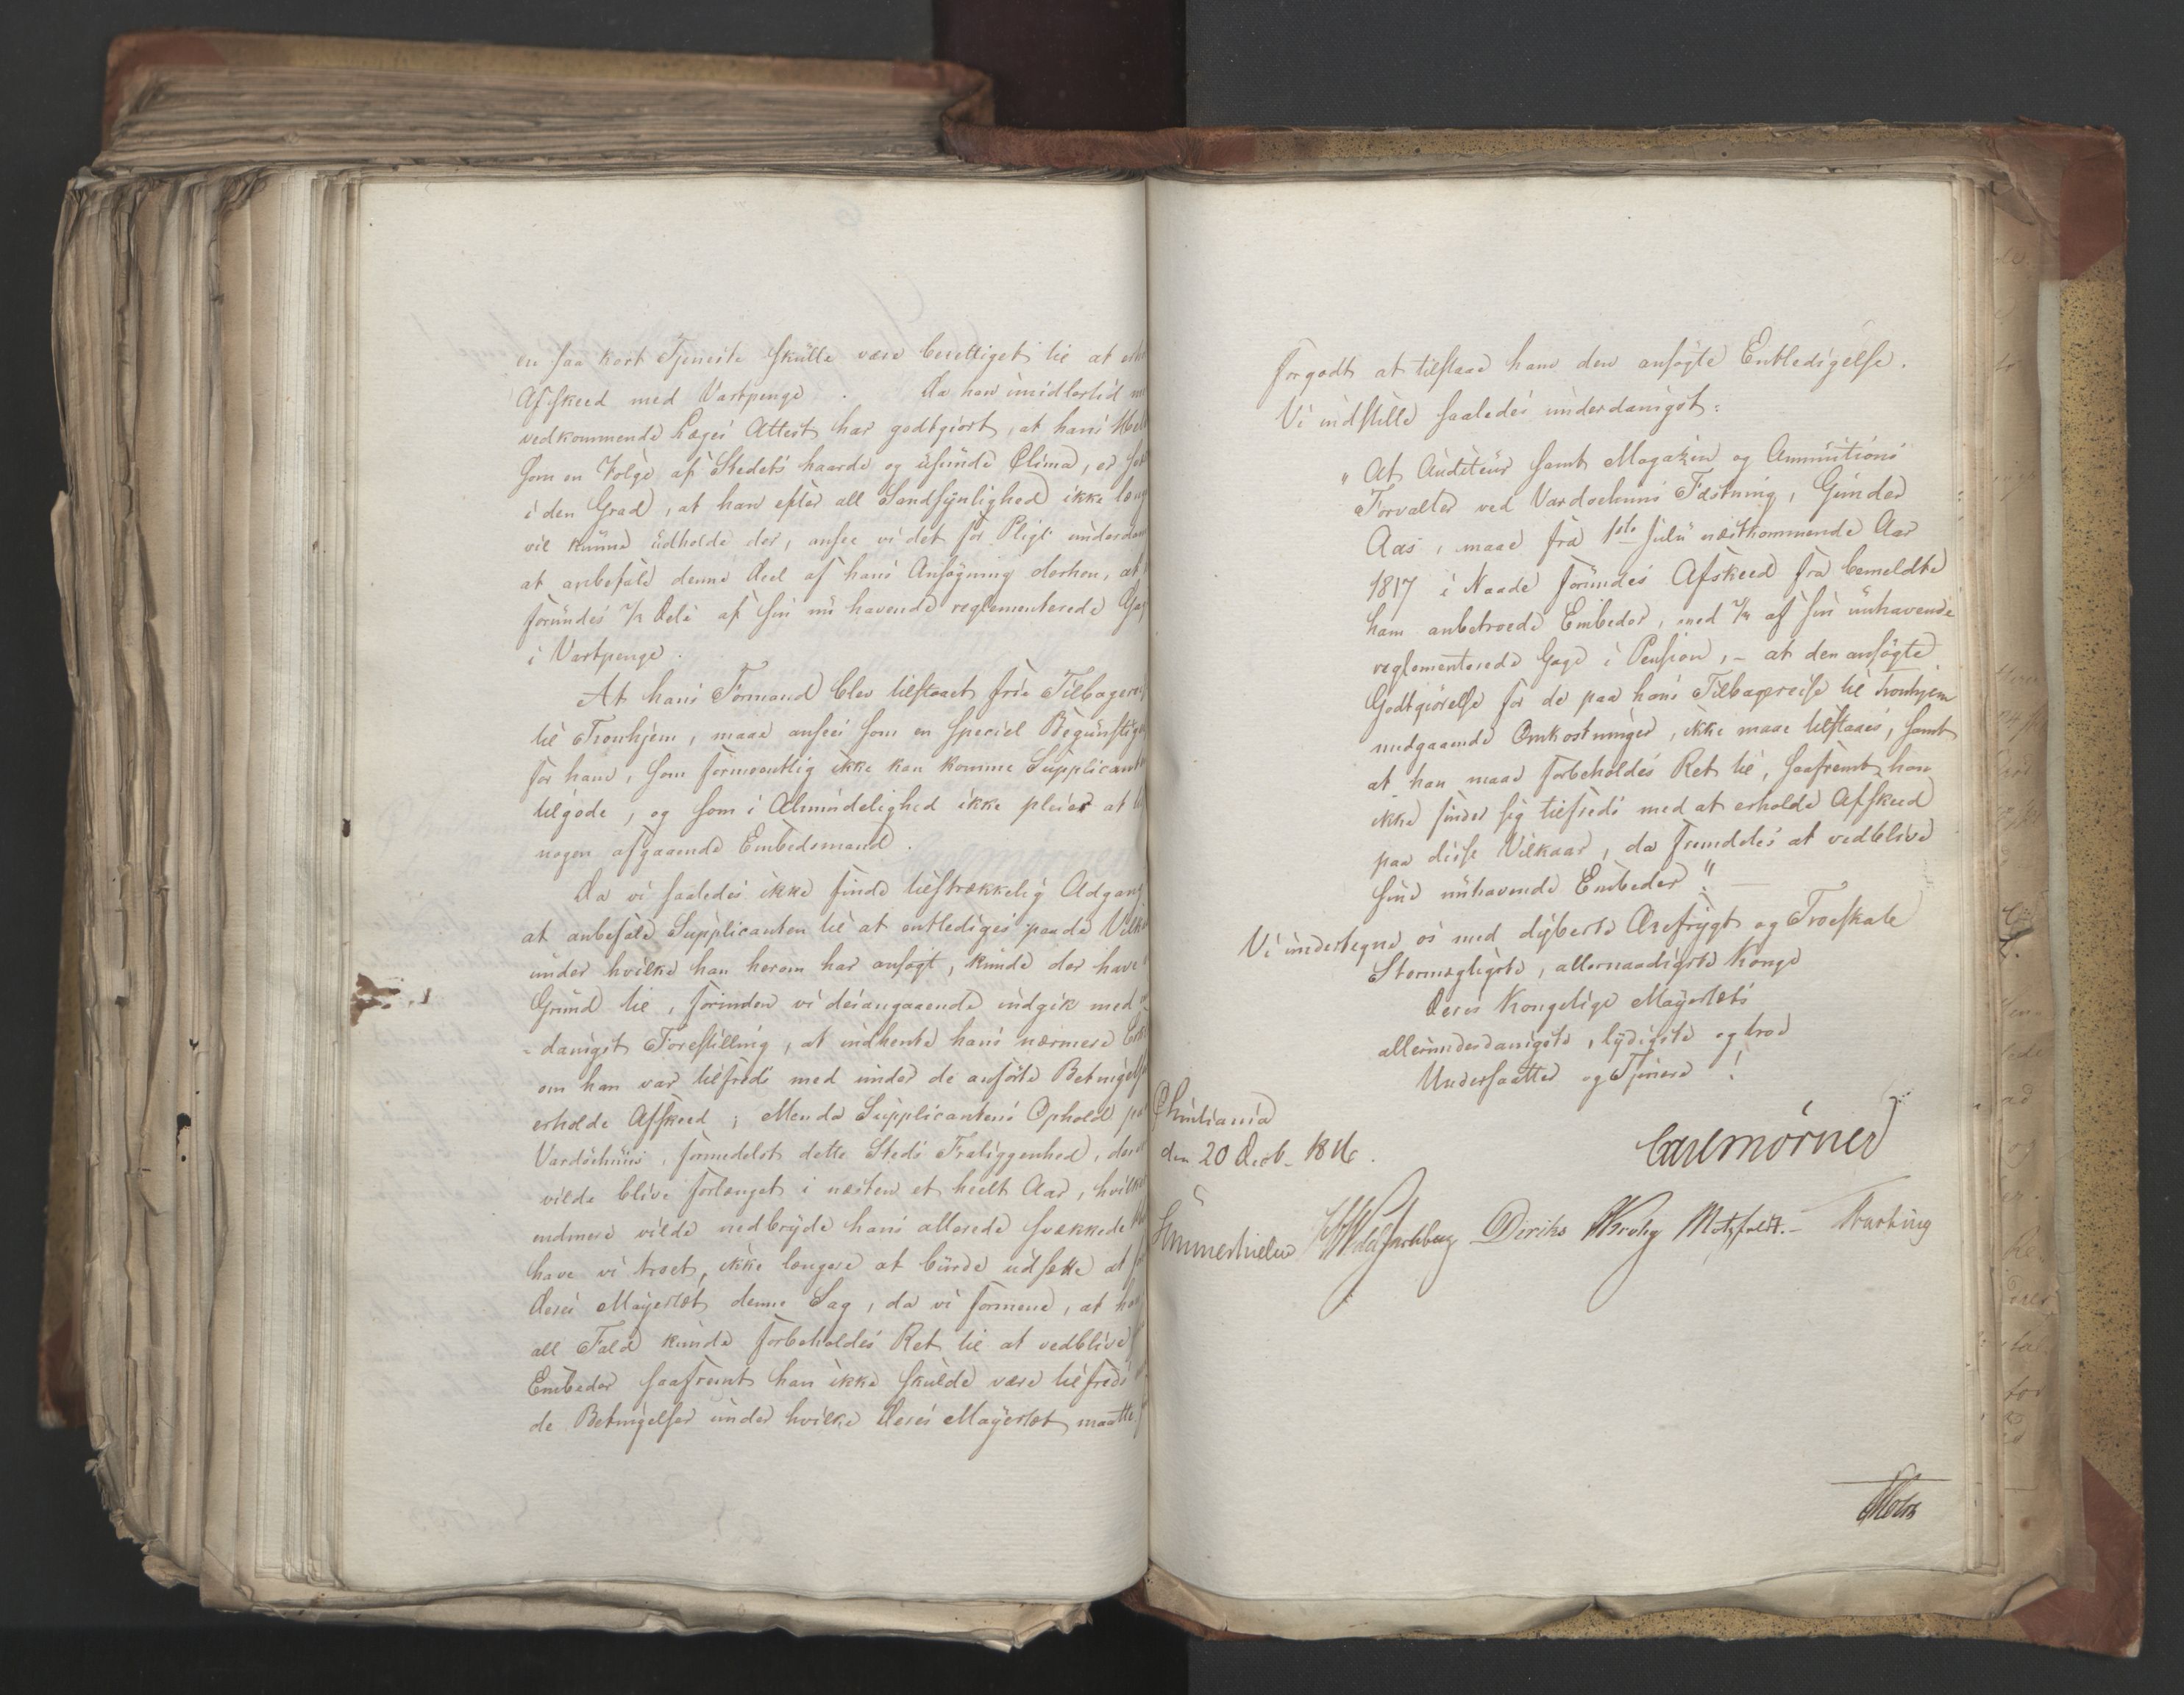 en saa kort Tjeneste skulle være berettiget til at
Afskeed med Vartpenge. Da han imidlertid
vedkommende Læges Attest har godtgiort, at hans
som en Følge af Stedets haarde og usunde Clima, er
i den Grad, at han efter all Sandsynlighed ikke
vil kunne udholde der, ansee vi det for Pligt
at anbefale denne Deel af hans Ansøgning derhen, at
forundes Dele af sin nu havende reglementerede
i Vartpenge.
At hans Formand blev tilstaaet frie
til Tronhjem, maae ansees som en speciel
for ham, som formeentlig ikke kan komme
tilgode, og som i Almindelighed ikke pleier at
nogen afgaaende Embedsmand.
Da vi saaledes ikke finde tilstrækkelig Adgang
at anbefale Supplicanten til at entlediges paa de
under hvilke han herom har ansøgt, kunde der have
Grund til, forinden vi desangaaende indgik med
-danigst Forestilling, at indhente hans nærmere
om han var tilfreds med under de anførte
erholde Afskeed; Men da Supplicantens Ophold
Vardöehuus, formedelst dette Steds Fraliggenhed,
vilde blive forlænget i næsten et heelt Aar,
endmere vilde nedbryde hans allerede svækkede
have vi troet, ikke længere at burde udsætte at
Deres Mayestæt denne Sag, da vi formene, at
all Fald kunde forbeholdes Ret til at vedblive
Embeder saafremt han ikke skulde være tilfreds
de Betingelser under hvilke Deres Mayestæt maatte
forgodt at tilstaae ham den ansøgte Entledigelse.
Vi indstille saaledes underdanigst:
"At Auditeur samt Magazin og Ammunitions
Forvalter ved Vardoehuus Fæstning, Gunder
Aas, maae fra 1ste Julii næstkommende Aar
1817 i Naade forundes Afskeed fra bemeldte
ham anbetroede Embeder, med af sin nuhavende
reglementerede Gage i Pension, - at den ansøgte
Godtgiørelse for de paa hans Tilbagereise til Tronhjem
medgaaende Omkostninger, ikke maae tilstaaes, samt
at han maae forbeholdes Ret til, saafremt han
ikke finder sig tilfreds med at erholde Afskeed
paa disse Vilkaar, da fremdeles at vedblive
sine nuhavende Embeder."
Vi undertegne os med dybeste Ærefrygt og Troeskab
Stormægtigste, allernaadigste Konge
Deres Kongelige Mayestæts
allerunderdanigste, lydigste og troe
Undersaatter og Tjenere!
Christiania
den 20 Decb. 1816.
Carl Mörner
Sommerhielm Diriks Krohg Motzfeldt.-
Holst